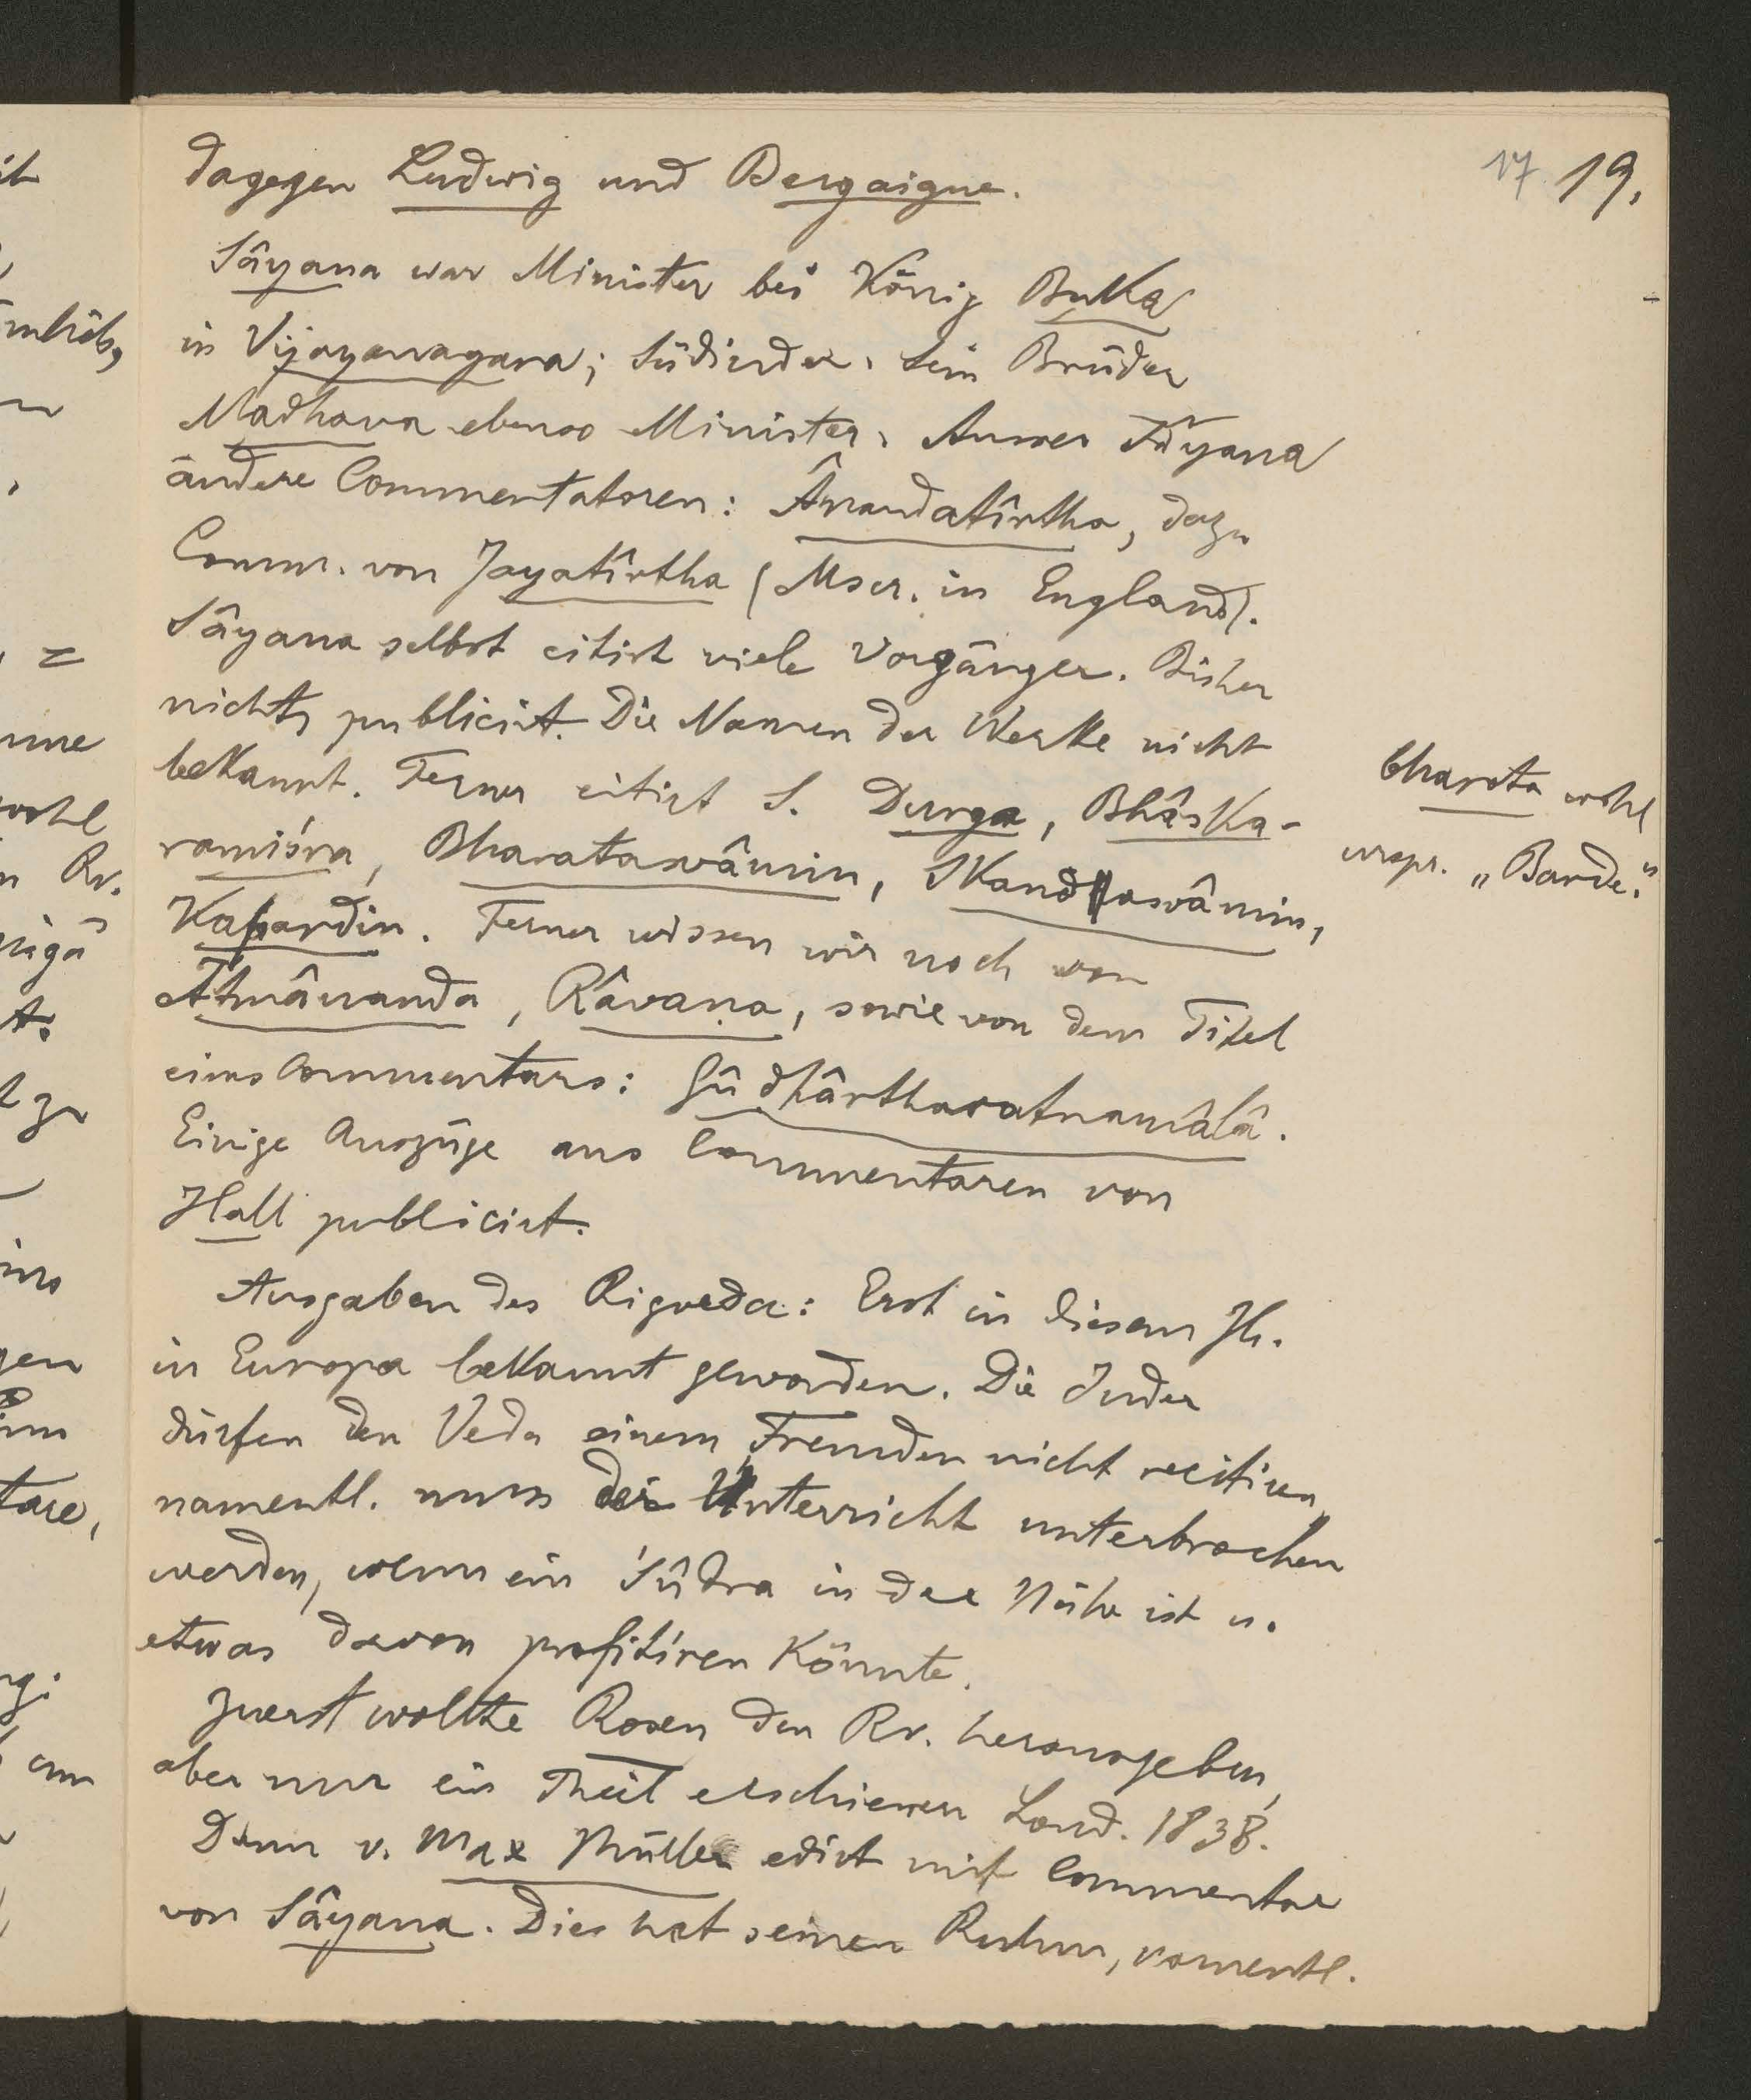 17 19.
dagegen Ludwig und Bergaigne.
Sâyana war Minister bei König Buka
in Vijayanagara; Südinder. Sein Brŭder
Madhava ebenso Minister. Ausser Sâyana
andere Commentatoren: Ânandatîrtha, dazu
Comm. von Jayatîrtha (Mscr. in England).
Sâyana selbst citirt viele Vorgänger. Bisher
nichts publicirt. Die Namen der Werke nicht
bekannt. Ferner citirt S. Durga, Bhâska-
ramiśra, Bharataswâmin, Skandaswâmin,
Kapardin. Ferner wissen wir noch von
Atmânanda, Râvaṇa, sowie von dem Titel
eines Commentars: Gûḍhârtharatnamâlâ.
Einige Auszüge aus Commentaren von
Hall publicirt.
bharata wohl
urspr. „Barde“.
Ausgaben des Rigveda: Erst in diesem Jh.
in Europa bekannt geworden. Die Inder
dürfen den Veda einem Fremden nicht recitiren,
namentl. muss der Unterricht unterbrochen
werden, wenn ein Śûdra in der Nähe ist u.
etwas davon profitiren könnte.
Zuerst wollte Rosen den Rv. herausgeben,
aber nur ein Theil erschienen Lond. 1838.
Dann v. Max Müller edirt mit Commentar
von Sâyana. Dies hat seinen Ruhm, namentl.